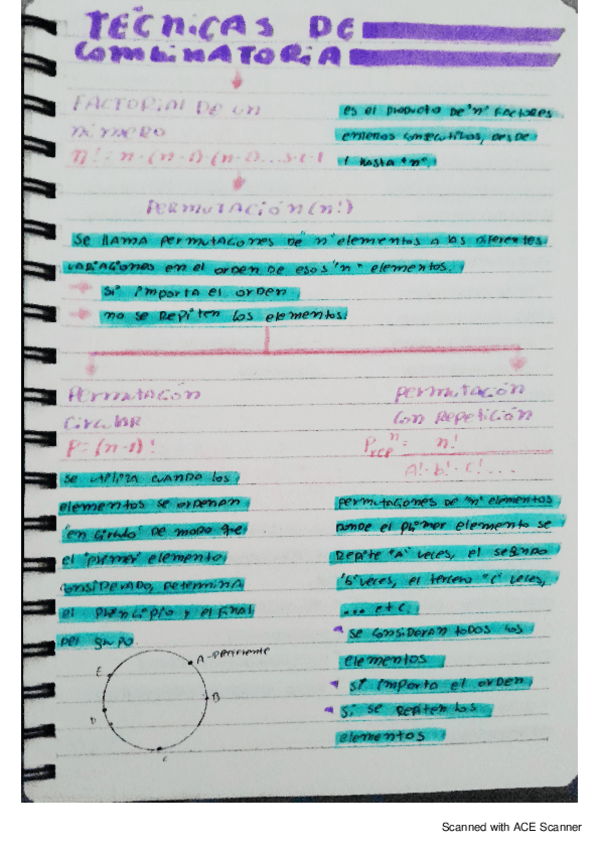 TÉCNICAS DE
COMBINATORIA
FACTORIAL DE UN
NÚMERO
n! = n · (n-1) · (n-2) ... 3·2·1
es el producto de "n" factores
enteros consecutivos, desde
1 hasta "n".
PERMUTACIÓN (n!)
se llama permutaciones de "n" elementos a las diferentes
variaciones en el orden de esos "n" elementos.
Sí importa el orden
no se repiten los elementos.
PERMUTACIÓN
CIRCULAR
P = (n-1)!
se utiliza cuando los
elementos se ordenan
"en círculo" de modo que
el "primer" elemento
considerado, determina
el principio y el final
del grupo.
A
B
C
D
E
PERMUTACIÓN
CON REPETICIÓN
P n = n!
REP A! · b! · c! ...
permutaciones de "n" elementos
donde el primer elemento se
repite "A" veces, el segundo
"b" veces, el tercero "c" veces,
... etc.
se consideran todos los
elementos
sí importa el orden
sí se repiten los
elementos
Scanned with ACE Scanner